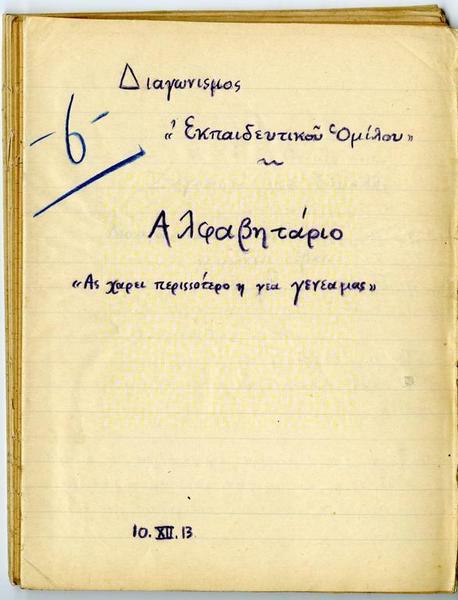 Διαγωνισμος
-6-
«Ἐκπαιδευτικοῦ Ὁμίλου»
~
Αλφαβητάριο
«Ας χαρει περισσότερο η νεα γενεα μας»
10. XII. 13